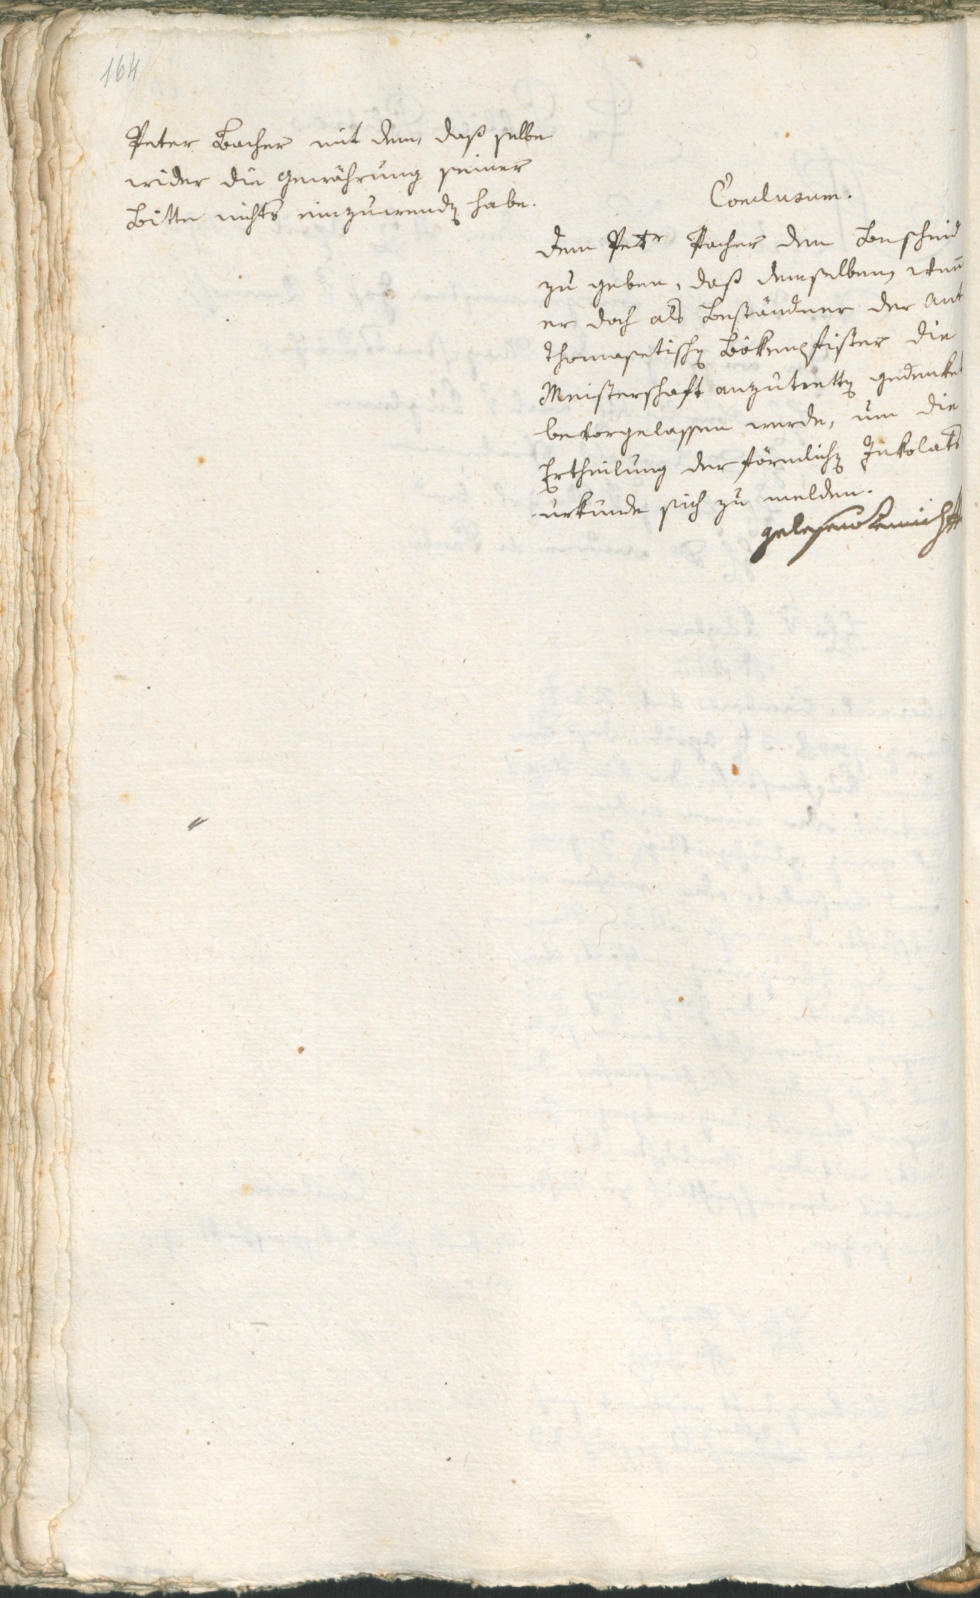 164
Peter Bacher mit dem, daß selbe
wider die Gewährung seiner
Bitte nichts einzuwenden habe.
Conclusum.
Dem Petr Pacher den Bescheid
zu geben, daß demselben, wenn
er doch als Beständner der Ant
Thomasetischen Bökenpfister die
Meisterschaft anzutretten gedenket
bevorgelassen werde, um die
Ertheilung der förmlichen Inkolats
urkunde sich zu melden.
gelesen